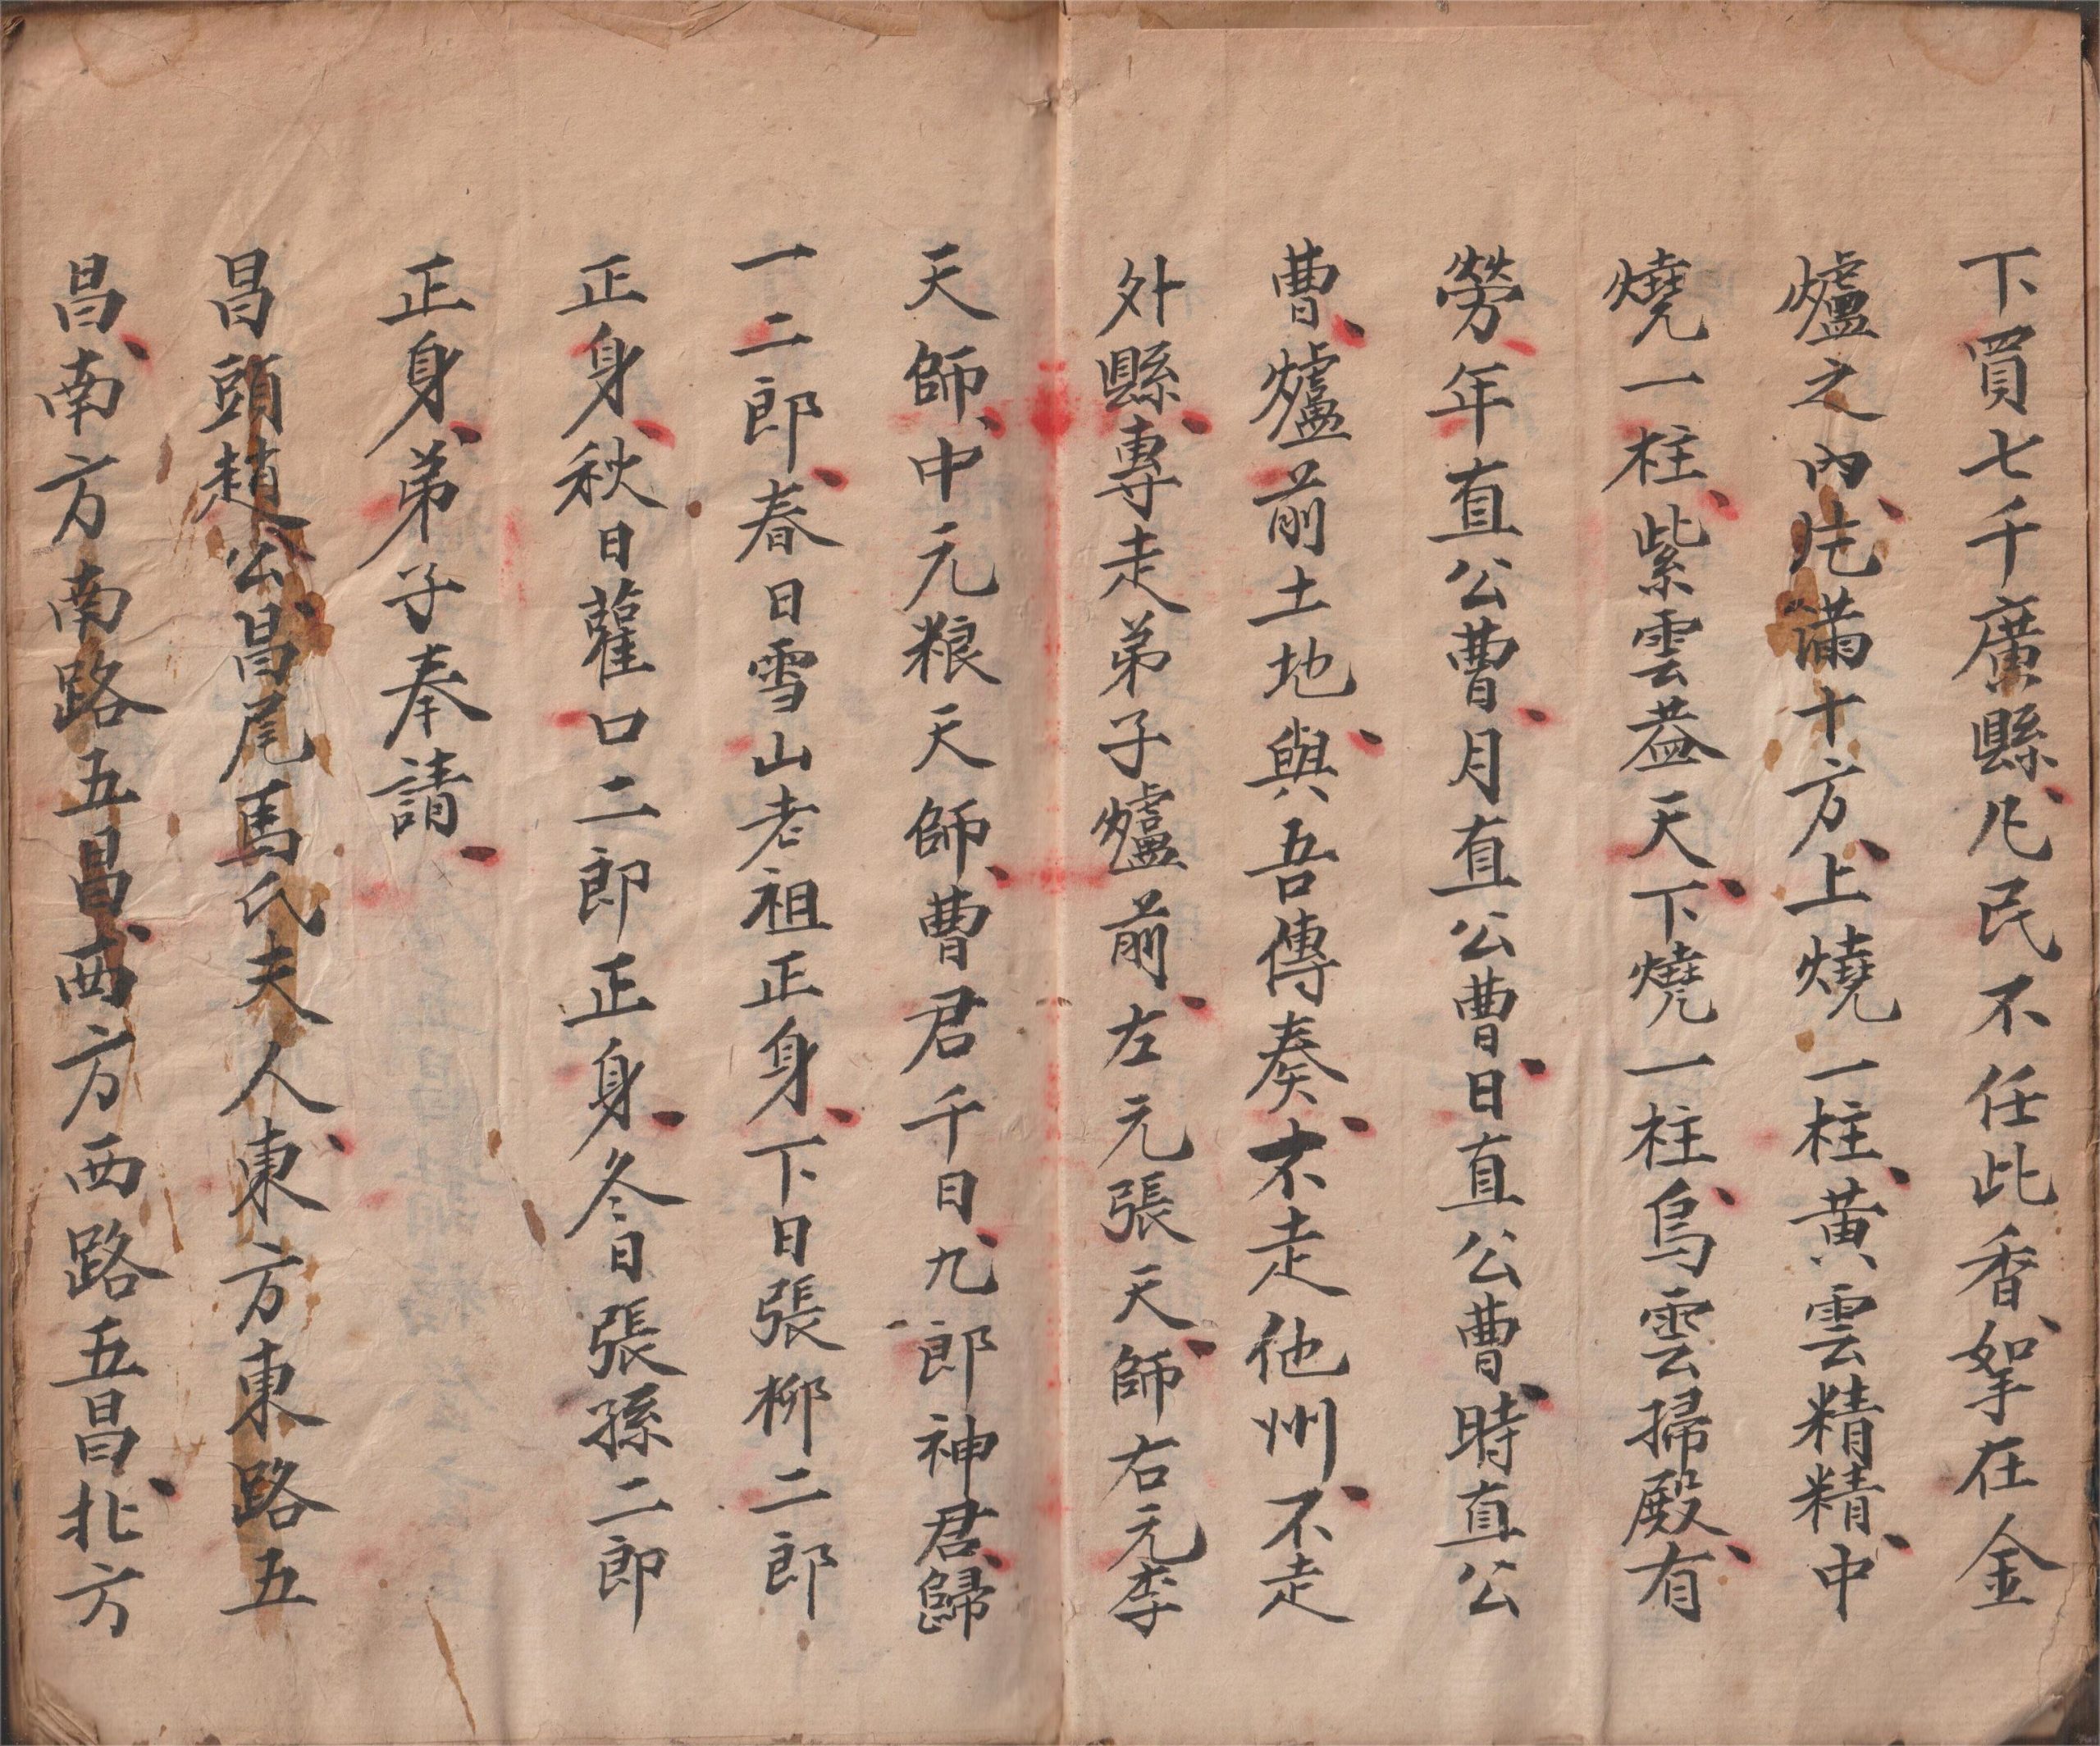 下買七千廣縣凡民不任此香如拏在金
爐之內庀滿十方上燒一柱黃雲精精中
燒一柱紫雲蓋天下燒一柱烏雲掃殿有
勞年直公曹月直公曹日直公曹時直公
曹爐前土地與吾傳奏不走他州不走
外縣專走弟子爐前左元張天師右元李
天師中元粮天師曹君千日九郎神君歸
一二郎春日雪山老祖正身下日張柳二郎
正身秋日雚口二郎正身冬日張孫二郎
正身弟子奉請
昌頭趙公昌尾馬氏夫人東方東路五
昌南方南路五昌西方西路五昌北方